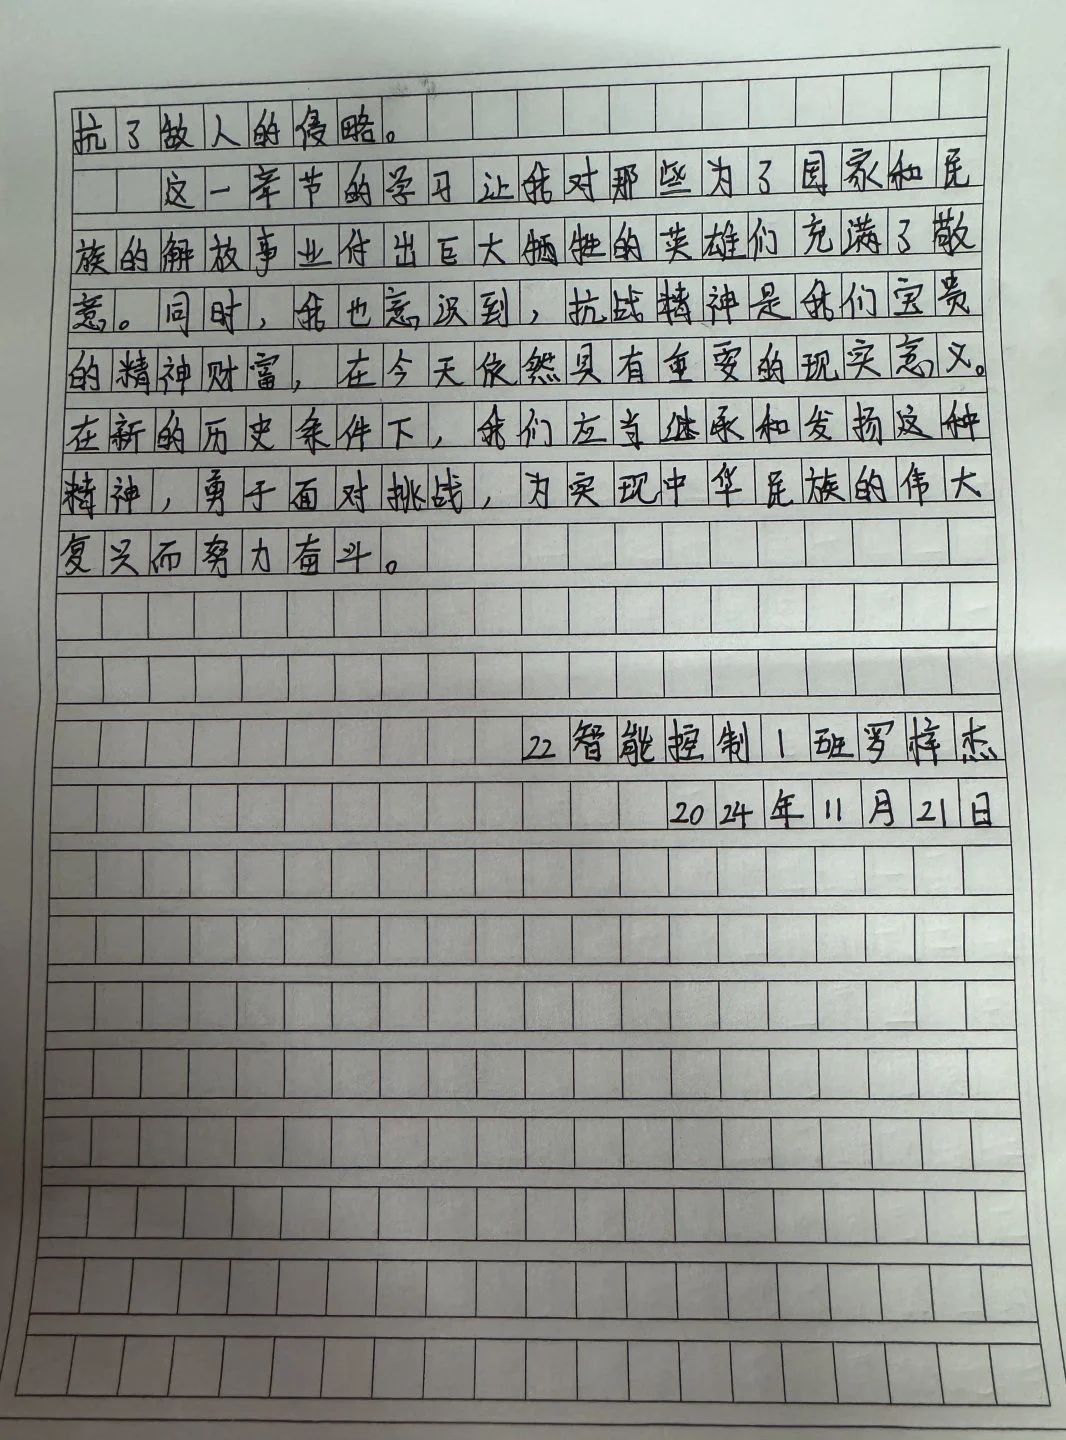 抗了敌人的侵略。
这一章节的学习让我对那些为了国家和民
族的解放事业付出巨大牺牲的英雄们充满了敬
意。同时，我也意识到，抗战精神是我们宝贵
的精神财富，在今天依然具有重要的现实意义。
在新的历史条件下，我们应当继承和发扬这种
精神，勇于面对挑战，为实现中华民族的伟大
复兴而努力奋斗。
22智能控制1班罗梓杰
2024年11月21日